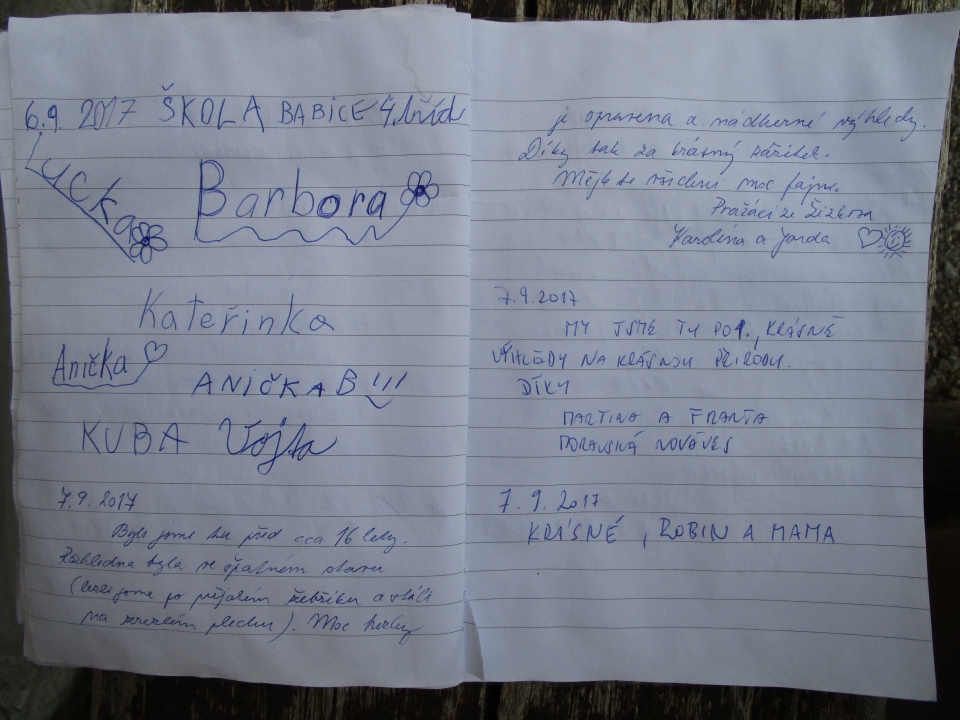 6.9. 2017 ŠKOLA BABICE 4. tříd
Lucka
Barbora
Kateřinka
Anička
ANIČKA B !!!
KUBA Vojta
7.9. 2017
Byli jsme tu před cca 16 lety.
Rozhledna byla ve špatném stavu
(lezli jsme po žebříku a stáli
na plechu). Moc hezky
je opravena a nádherné výhledy.
Díky tak za krásný zážitek.
Mějte se všichni moc fajn.
Pražáci ze Žižkova
Karolína a Jarda
7.9.2017
MY JSME TU PO 1., KRÁSNÉ
VÝHLEDY NA KRÁSNOU PŘÍRODU.
DÍKY
MARTINA A FRANTA
MORAVSKÁ NOVÁ VES
7.9.2017
KRÁSNÉ, ROBIN A MAMA